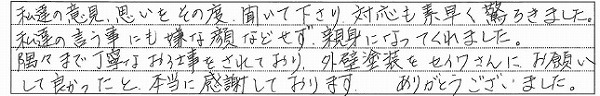 私達の意見、思いをその度、聞いて下さり、対応も素早く驚ろきました。
私達の言う事にも嫌な顔などせず、親身になってくれました。
隅々まで丁寧なお仕事をされており、外壁塗装をセイワさんに、お願い
して良かったと、本当に感謝しております。　ありがとうございました。